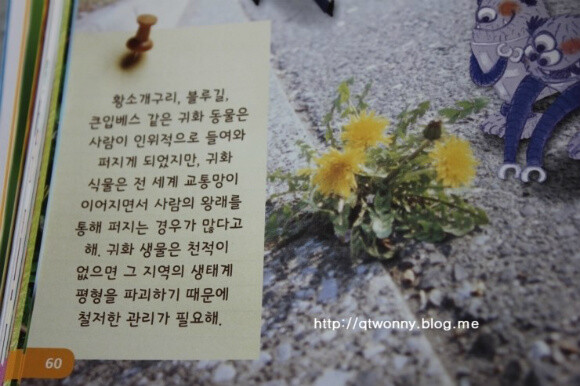 황소개구리, 블루길,
큰입베스 같은 귀화 동물은
사람이 인위적으로 들여와
퍼지게 되었지만, 귀화
식물은 전 세계 교통망이
이어지면서 사람의 왕래를
통해 퍼지는 경우가 많다고
해. 귀화 생물은 천적이
없으면 그 지역의 생태계
평형을 파괴하기 때문에
철저한 관리가 필요해.
http://qtwonny.blog.me
60